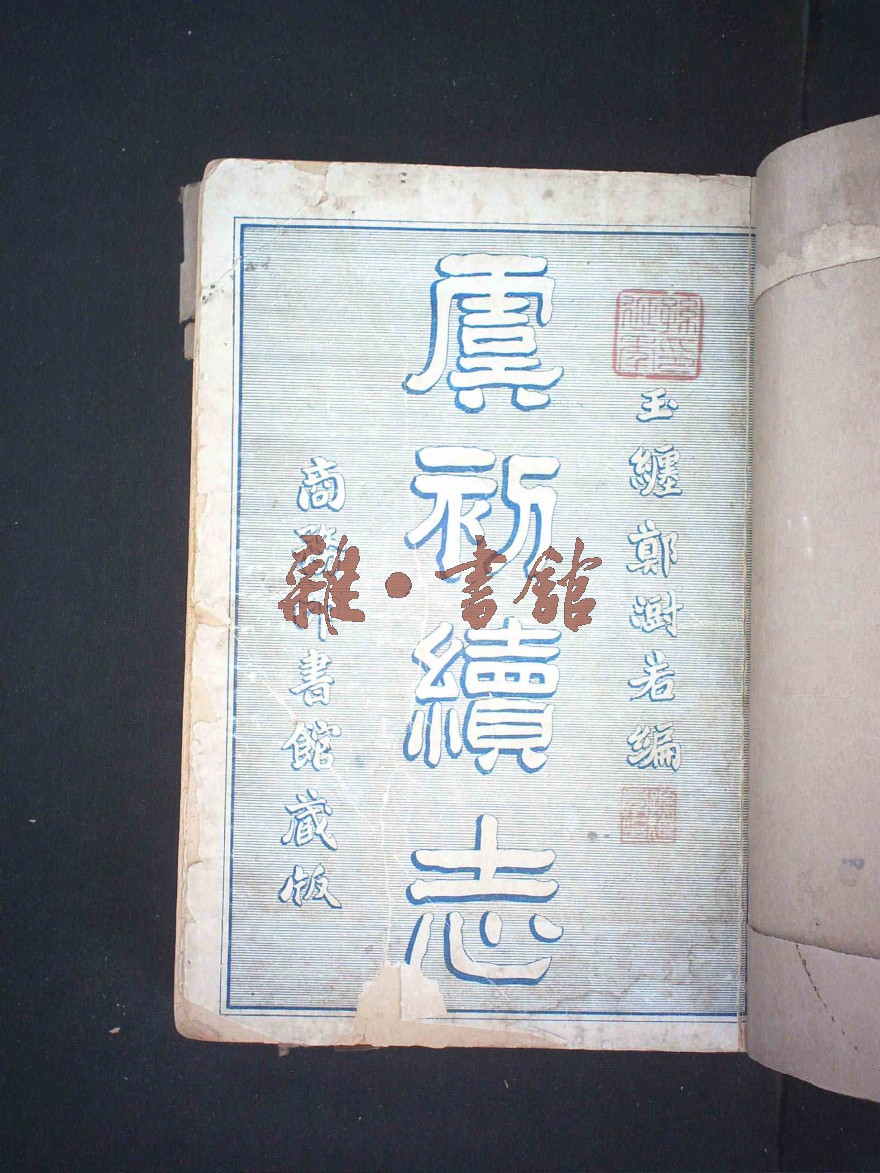 玉纏鄭澍若編
虞初續志
商務印書館藏版
雜·書館